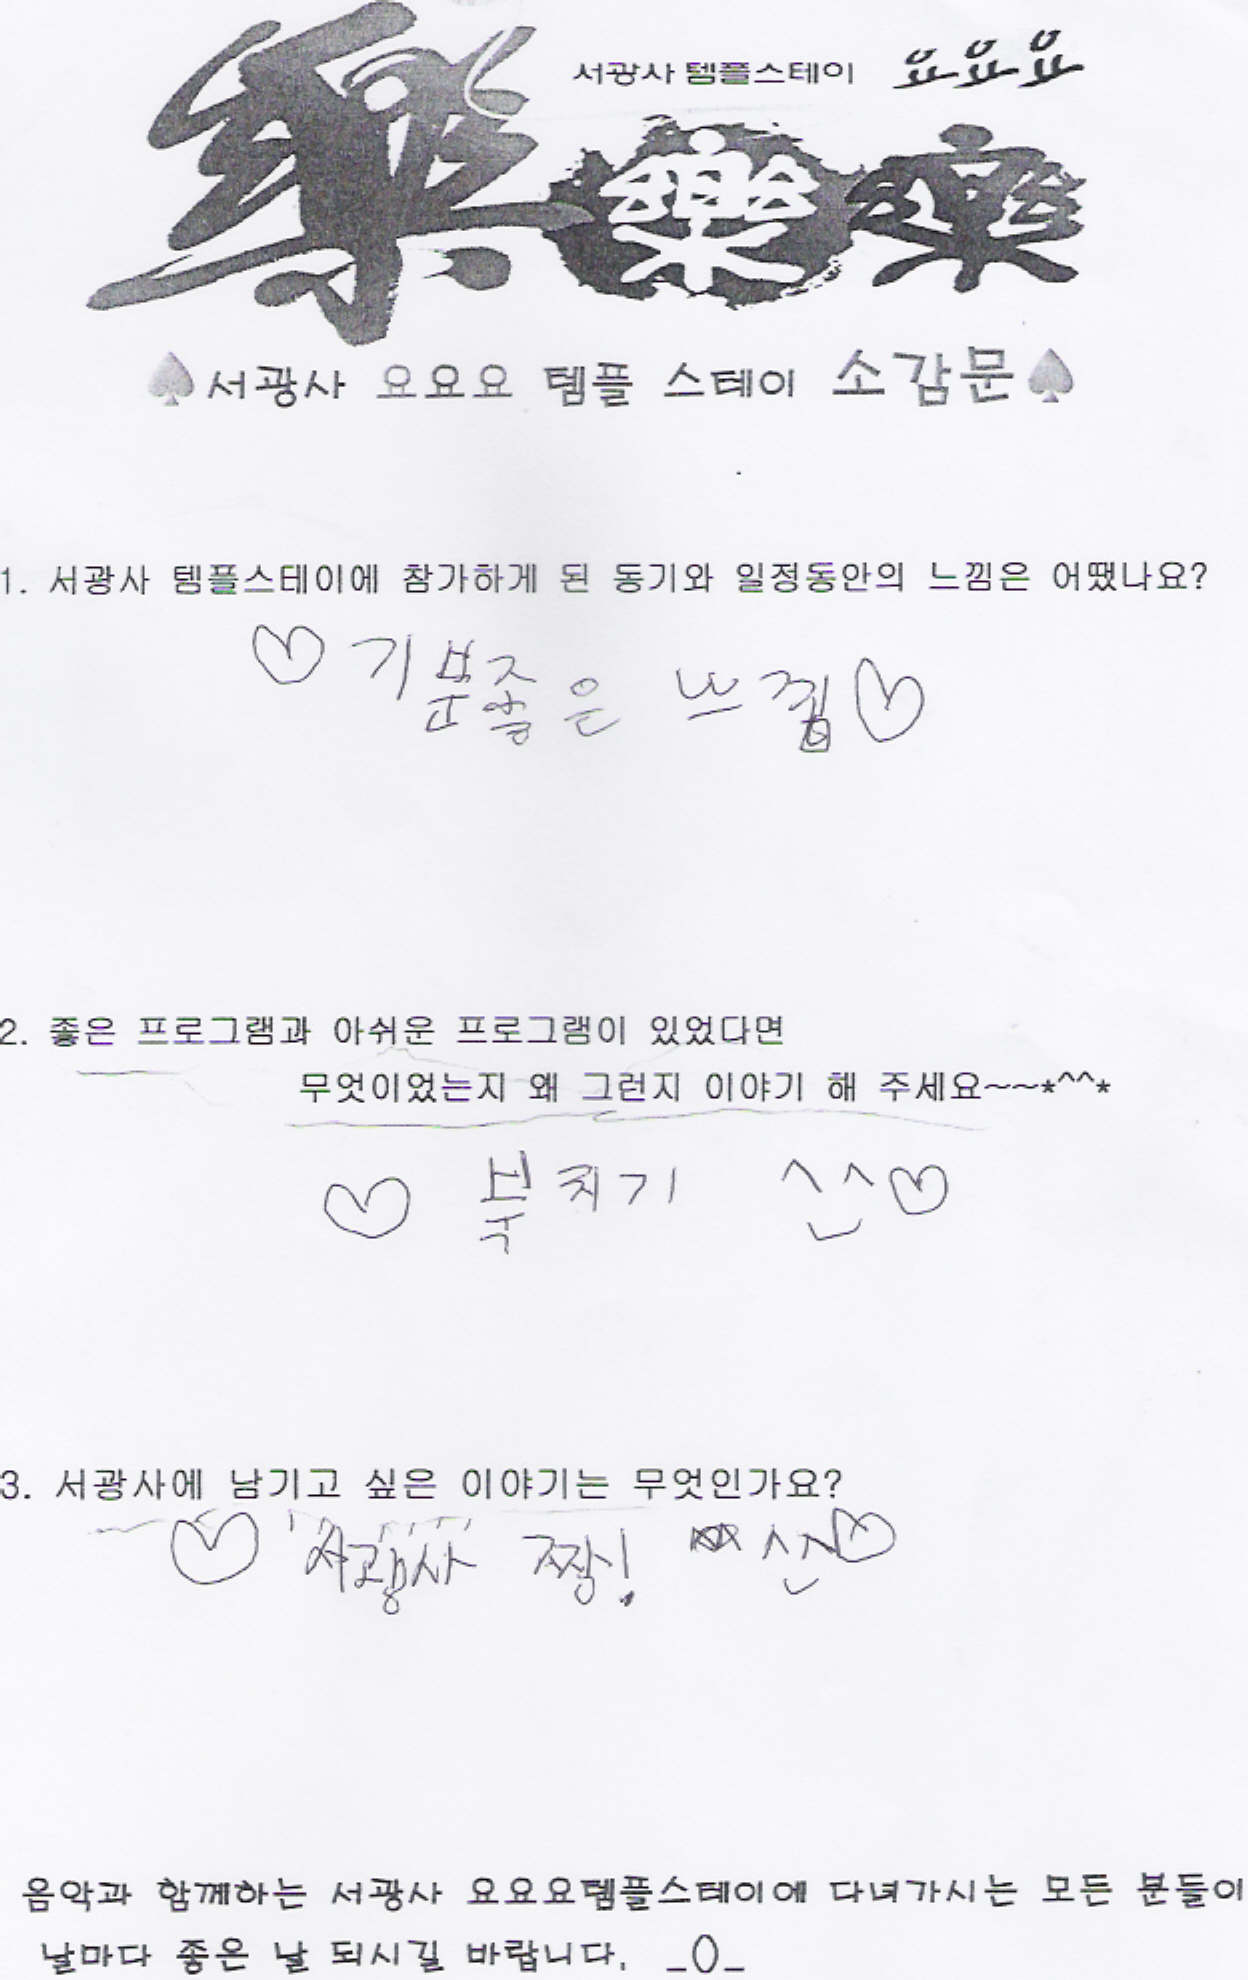 서광사 템플스테이 요요요
樂 樂 樂
♠서광사 요요요 템플 스테이 소감문♠
1. 서광사 템플스테이에 참가하게 된 동기와 일정동안의 느낌은 어땠나요?
♡기분좋은 느낌♡
2. 좋은 프로그램과 아쉬운 프로그램이 있었다면
무엇이었는지 왜 그런지 이야기 해 주세요~~*^^*
♡ 북치기 ^^♡
3. 서광사에 남기고 싶은 이야기는 무엇인가요?
♡ 서광사 짱! ^^♡
음악과 함께하는 서광사 요요요템플스테이에 다녀가시는 모든 분들이
날마다 좋은 날 되시길 바랍니다. _()_